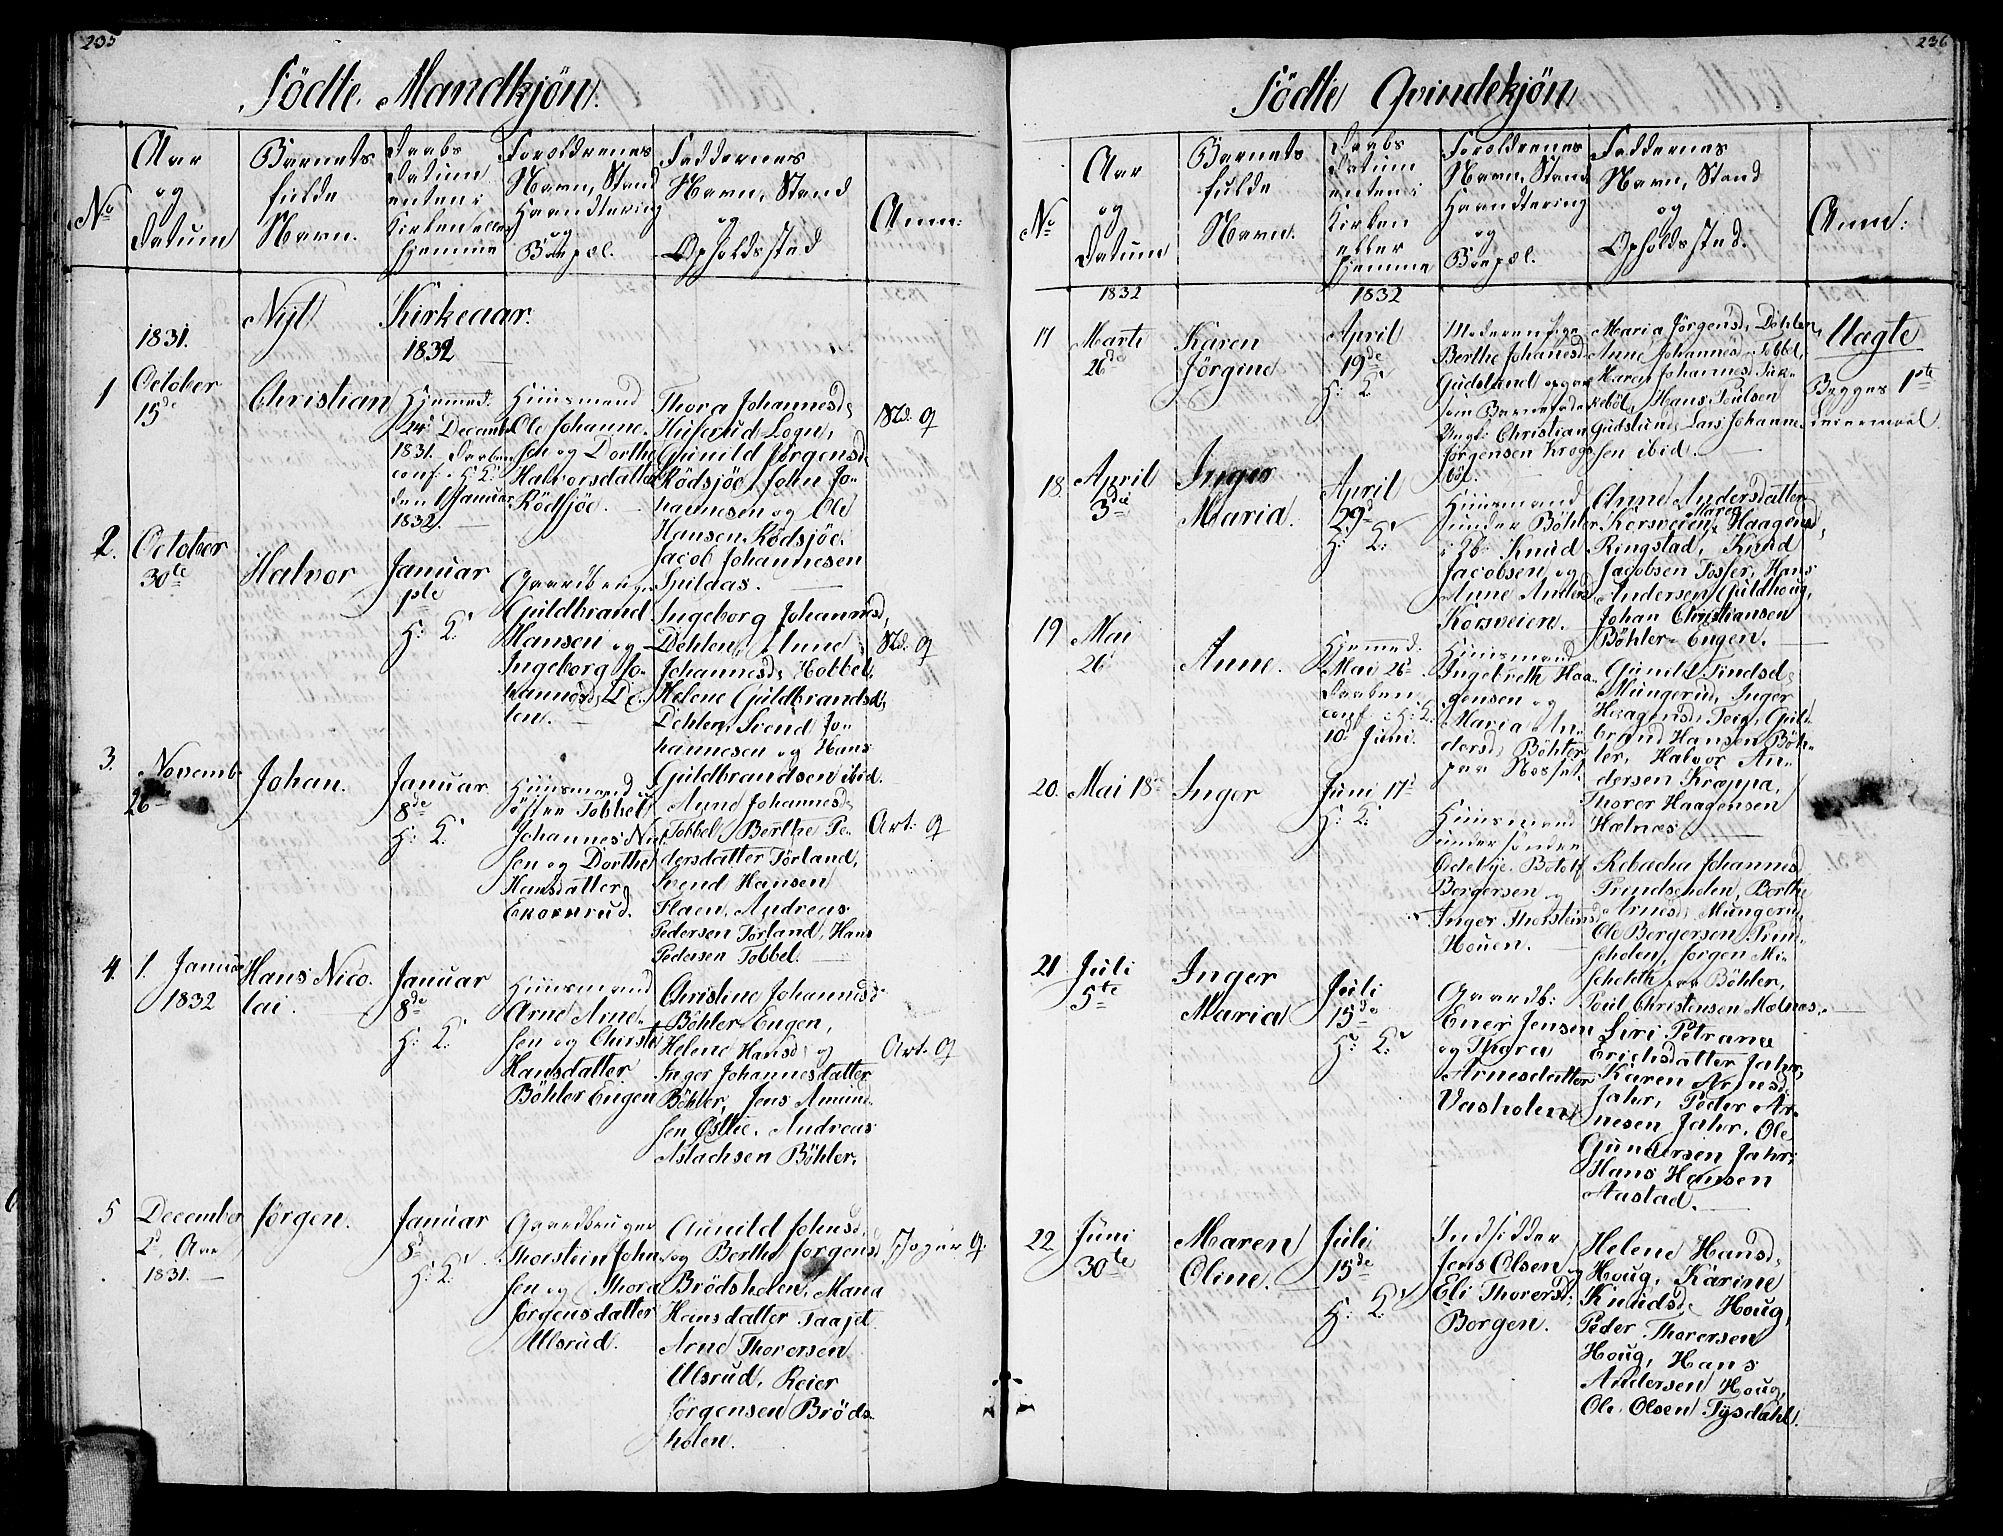 235
Födte Mandkjön.
No
Aar
og
Datum
Barnets
fulde
Navn.
Daabs
Datum
enten i
Kirken eller
hjemme
Forældrenes
Navn, Stand
Haandtering
og
Boepæl.
Faddernes
Navn, Stand
og
Opholdssted
Anm:
Nyt Kirkeaar.
1831.
1832
1
October
15de
Christian
Hjemmed.
24 Decemb
1831. Daaben
conf. i H: K:
den 1 Januar
1832.
Huusmand
Ole Johanne-
sen og Dorthe
Halvorsdatter
Rödsjöe.
Thora Johannesd:
Huserud Logn,
Gunild Jörgensd:
Rödsjöe, John Jo-
hannesen og Ole
Hansen Rödsjöe,
Jacob Johannesen
2.
October
30te
Halvor
Januar
1ste
H: K:
Gaardbruger
Guldbrand
Hansen og
Ingeborg Jo-
hannesd: De-
len.
Ingeborg Johannesd,
Dehlen, Anne
Johannesd: Hobbel,
Helene Guldbrandsd:
Dehlen, Svend Jo-
hannesen og Hans
Guldbrandsen ibid.
3.
Novemb.
26
Johan.
Januar
8de
H: K:
Huusmand u
østre Tobbel
Johannes Nil-
sen og Dorthe
Hansdatter
Ekornrud.
Anne Johannesd:
Tobbel, Berthe Pe-
dersdatter Torland,
Svend Hansen
Flaen, Andreas
Pedersen Torland, Hans
Pedersen Tobbel.
4.
1. Januar
1832
Hans Nico-
lai.
Januar
8de
H: K:
Huusmand
Arne Arne-
sen og Christi
Hansdatter
Böhler Engen
Christine Johannesd:
Böhler Engen,
Helene Hansd: og
Inger Johannesdatter
Böhler, Jens Amund-
sen Østhe, Andreas
Aslachsen Böhler.
5
December
Aar
1831.
Jörgen.
Januar
8d
H: K:
Gaardbruger
Thorstein John-
sen og Thora
Jörgensdatter
Ulsrud.
Gunild Johnsd:
og Berthe Jörgensd
Brödsholen, Mana
Hansdatter Taajet
Arne Thoresen
Ulsrud, Reier
Jörgensen Bröds-
holen.
236
Födte Qvindekjön
No
Aar
og
Datum
Barnets
fulde
Navn.
Daabs
Datum
enten i
Kirken
eller
hjemme
Forældrenes
Navn, Stand
Haandtering
og
Boepæl.
Faddernes
Navn, Stand
og
Opholdssted.
Anm:
1832
1832
17
Marti
26de
Karen
Jörgine
April
19de
H: K:
Moderen Pige
Berthe Johanesd
Gudslund opgav
som Barnefader
Ungk: Christian
Jörgensen Krogs-
böl.
Maria Jörgensd: Dehlen,
Anne Johannesd: Tobbel,
Hans Poulsen
Gudslund, Lars Johanne-
sen ibid.
Uægte
Begges 1ste
Leiermaal
18.
April
3die
Inger
Maria.
April
29d
H: K:
Huusmand
under Böhler
Knud
Jacobsen og
Anne Andersd
Korsveien.
Anne Andersdatter
Korsveien, Maren Haagensd,
Ringstad, Knud
Jacobsen Tosser, Hans
Andersen Guldhoug,
Johan Christiansen
Böhler-Engen.
19
Mai
26
Anne.
Hjemmed.
Mai 26d
Daaben
conf i H: K:
10. Juni.
Huusmand
Ingebreth Haa-
gensen og
Maria An-
dersd: Böhler
paa Næsset.
Gunild Findsd:
Mungerud, Inger
Haagensd: Teig, Gul-
brand Hansen Böh-
ler, Halvor An-
dersen Kræppa,
Thorer Haagensen
Hælnæs
20.
Mai 18
Inger
Juni 17d
H: K:
Huusmand
under søndre
Ødebye Botolf
Bergersen og
Inger Thorsteinsd
Houen.
Rebacha Johannesd
Prindsenden, Berthe
Arnesd: Mungerud,
Ole Bergersen Prin-
sehden, Jörgen Mi-
paa Böhler,
Poul Christensen Mælnæs.
21
Juli
5te
Inger
Maria
Juli
15de
H: K:
Gaardb:
Ener Jensen
og Thora
Arnesdatter
Vasholen
Siri Petrana
Erichsdatter Jahr,
Karen Arnesd:
Jahr, Peder Ar-
nesen Jahr, Ole
Gundersen Jahr,
Hans Hansen
Aastad.
22
Juni
30te
Maren
Oline.
Juli
15de
H: K:
Indsidder
Jens Olsen og
Eli Thorersd:
Borgen.
Helene Hansd:
Houg, Karine
Knudsd: Houg,
Peder Thorersen
Houg, Hans
Andersen Houg,
Ole Olsen Tysdahl.